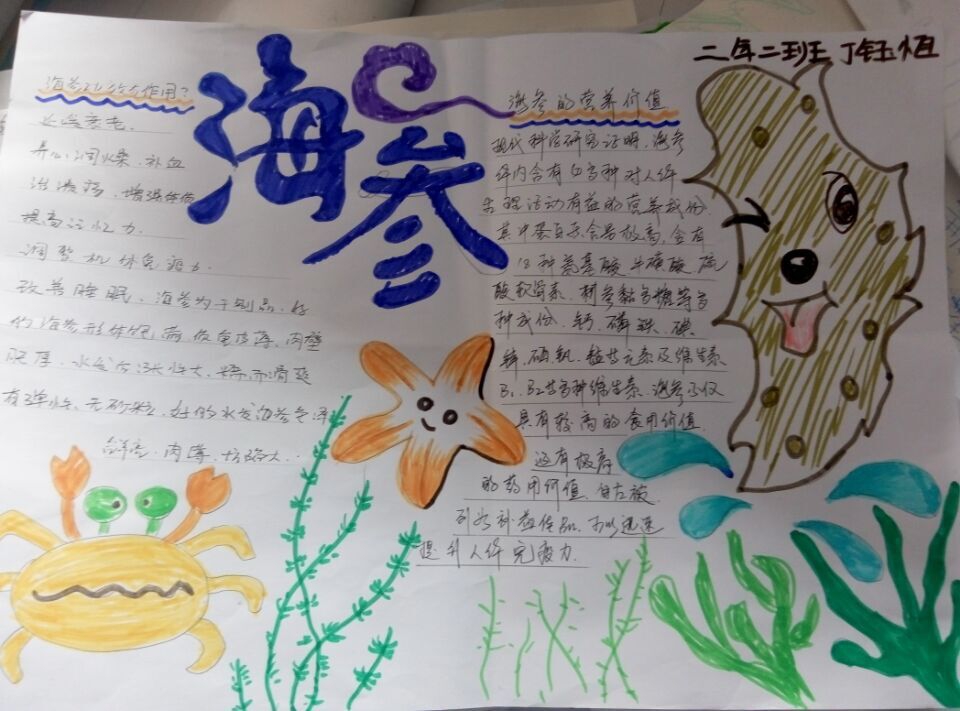 海参
二年二班 丁钰恒
海参功能与作用？
延缓衰老.
养心润燥、补血
治溃疡、增强体质
提高记忆力.
调整机体免疫力.
改善睡眠、海参为干制品、好
的海参形体饱满、质重皮薄、肉壁
肥厚、水发后涨性大、糯而滑爽
有弹性、无砂粒、好的水发海参色泽
鲜亮、肉薄、
海参的营养价值
现代科学研究证明、海参
体内含有白多种对人体
生理活动有益的营养成份.
其中蛋白质含量极高、含有
18种氨基酸 牛磺酸、硫
酸软骨素、刺参黏多糖等多
种成份、钙、磷、铁、碘、
锌、硒、钒、锰等元素及维生素
B1、B2等多种维生素、海参不仅
具有较高的食用价值.
还有极高
的药用价值、自古被
列为补益佳品、可以迅速
提升人体免疫力.